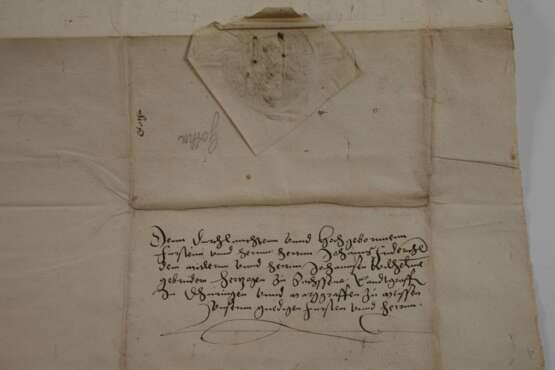 Gotha
Denn Durchlauchten vnnd Hochgebornnen
Fursten vnd herrn herrn Johanns Friderichs
den mitlern vnnd herrn Johansen Wilhelms
gebrudern Hertzogen zu Sachssen Landtgraffen
zu Thuringen vnnd marggraffen zu meyssen
vnsern gnedigen fursten vnnd herrnn